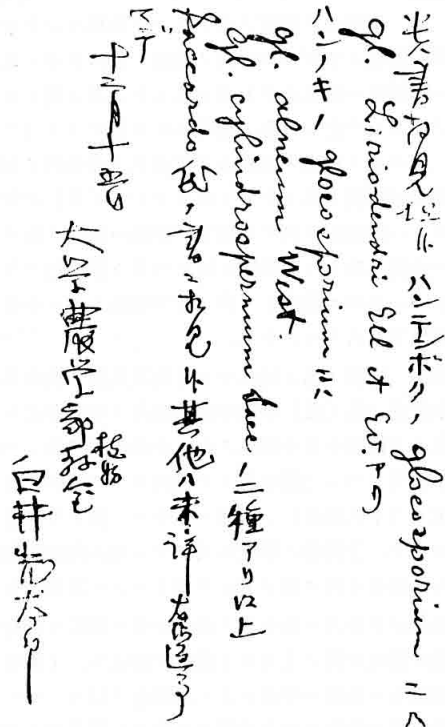 拝見仕候 ハンテンボク、gloeosporium ニハ
Gl. Liriodendri Ell et Ev. アリ
ハンノキ、gloeosporium ハ
Gl. alneum West.
Gl. cylindrospermum Sacc、二種アリ以上
Saccardo氏、書ニ相見ヘ其他ハ未詳
マデ
十二月十五日
大学農学部植物
白井光太郎